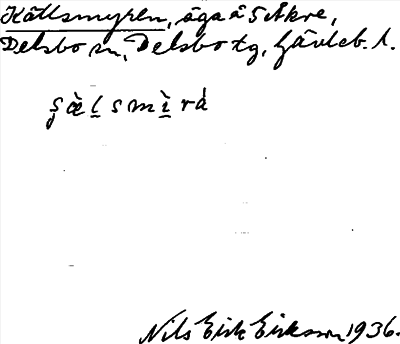 Källsmyren, äga å S Åkre,
Delsbo sn, Delsbo tg, Gävleb. l.
s̨æ̀l̠smı̠̀rȧ
Nils Erik Erikson 1936.